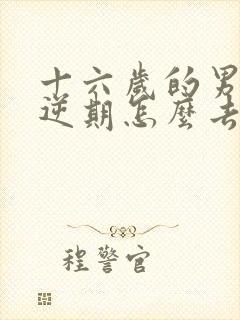 十六歲的男
逆期怎麼去
程警官